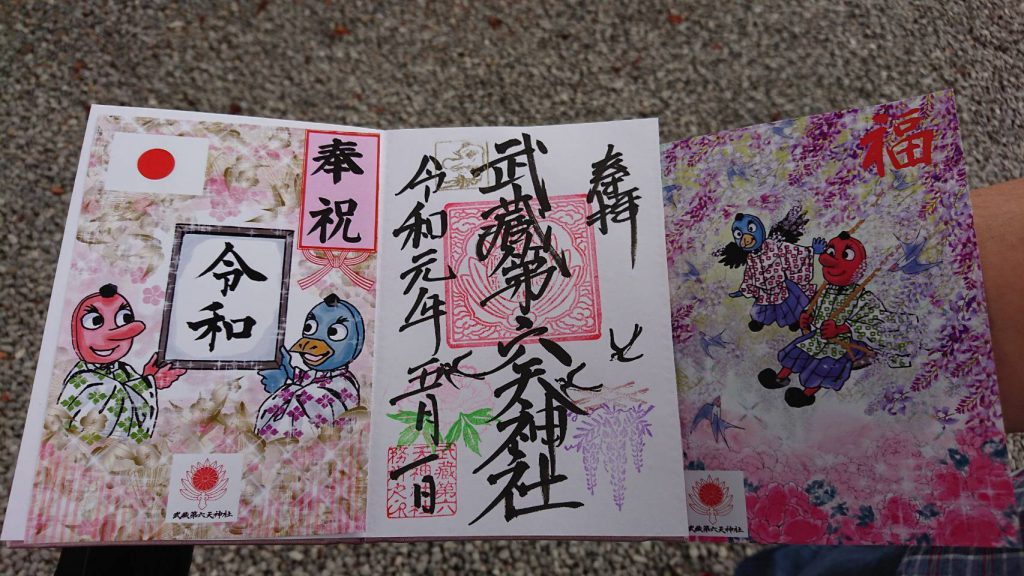 奉祝
令和
武蔵第六天神社
奉拝
武蔵第六天神社
令和元年五月一日
福
武蔵第六天神社